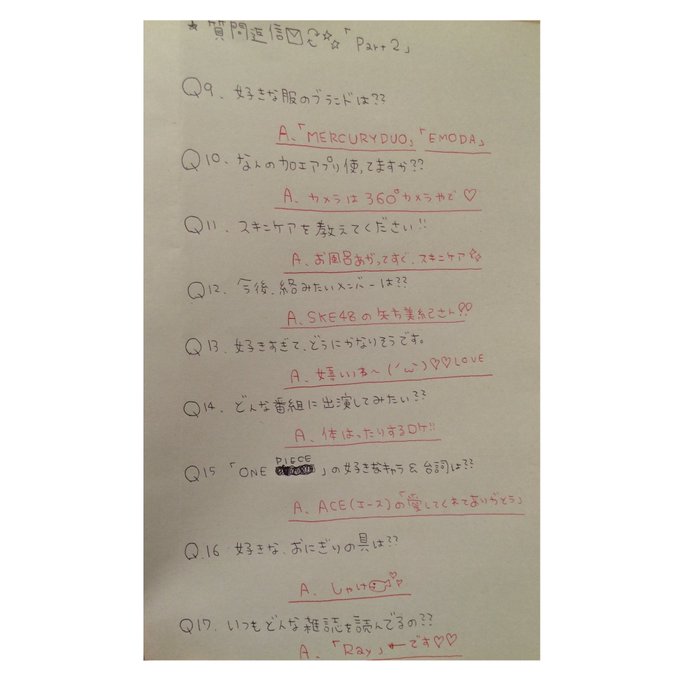 ★質問返信✉☆☆「Part2」
Q9、好きな服のブランドは??
A、「MERCURYDUO」「EMODA」
Q10、なんのカロエアプリ使ってますか??
A、カメラは360°カメラやで♡
Q11、スキンケアを教えてください!!
A、お風呂あがってすぐ、スキンケア☆☆
Q12、今後、絡みたいメンバーは??
A、SKE48の矢方美紀さん♡♡
Q13、好きすぎて、どうにかなりそうです。
A、嬉しいいる〜(´ω`)♡♡LOVE
Q14、どんな番組に出演してみたい??
A、体はったりするロケ!!
Q15「ONE PIECE」の好きなキャラ&台詞は??
A、ACE(エース)の「愛してくれてありがとう」
Q.16 好きな、おにぎりの具は??
A、しゃけ♡♡
Q17、いつもどんな雑誌を読んでるの??
A、「Ray」です♡♡